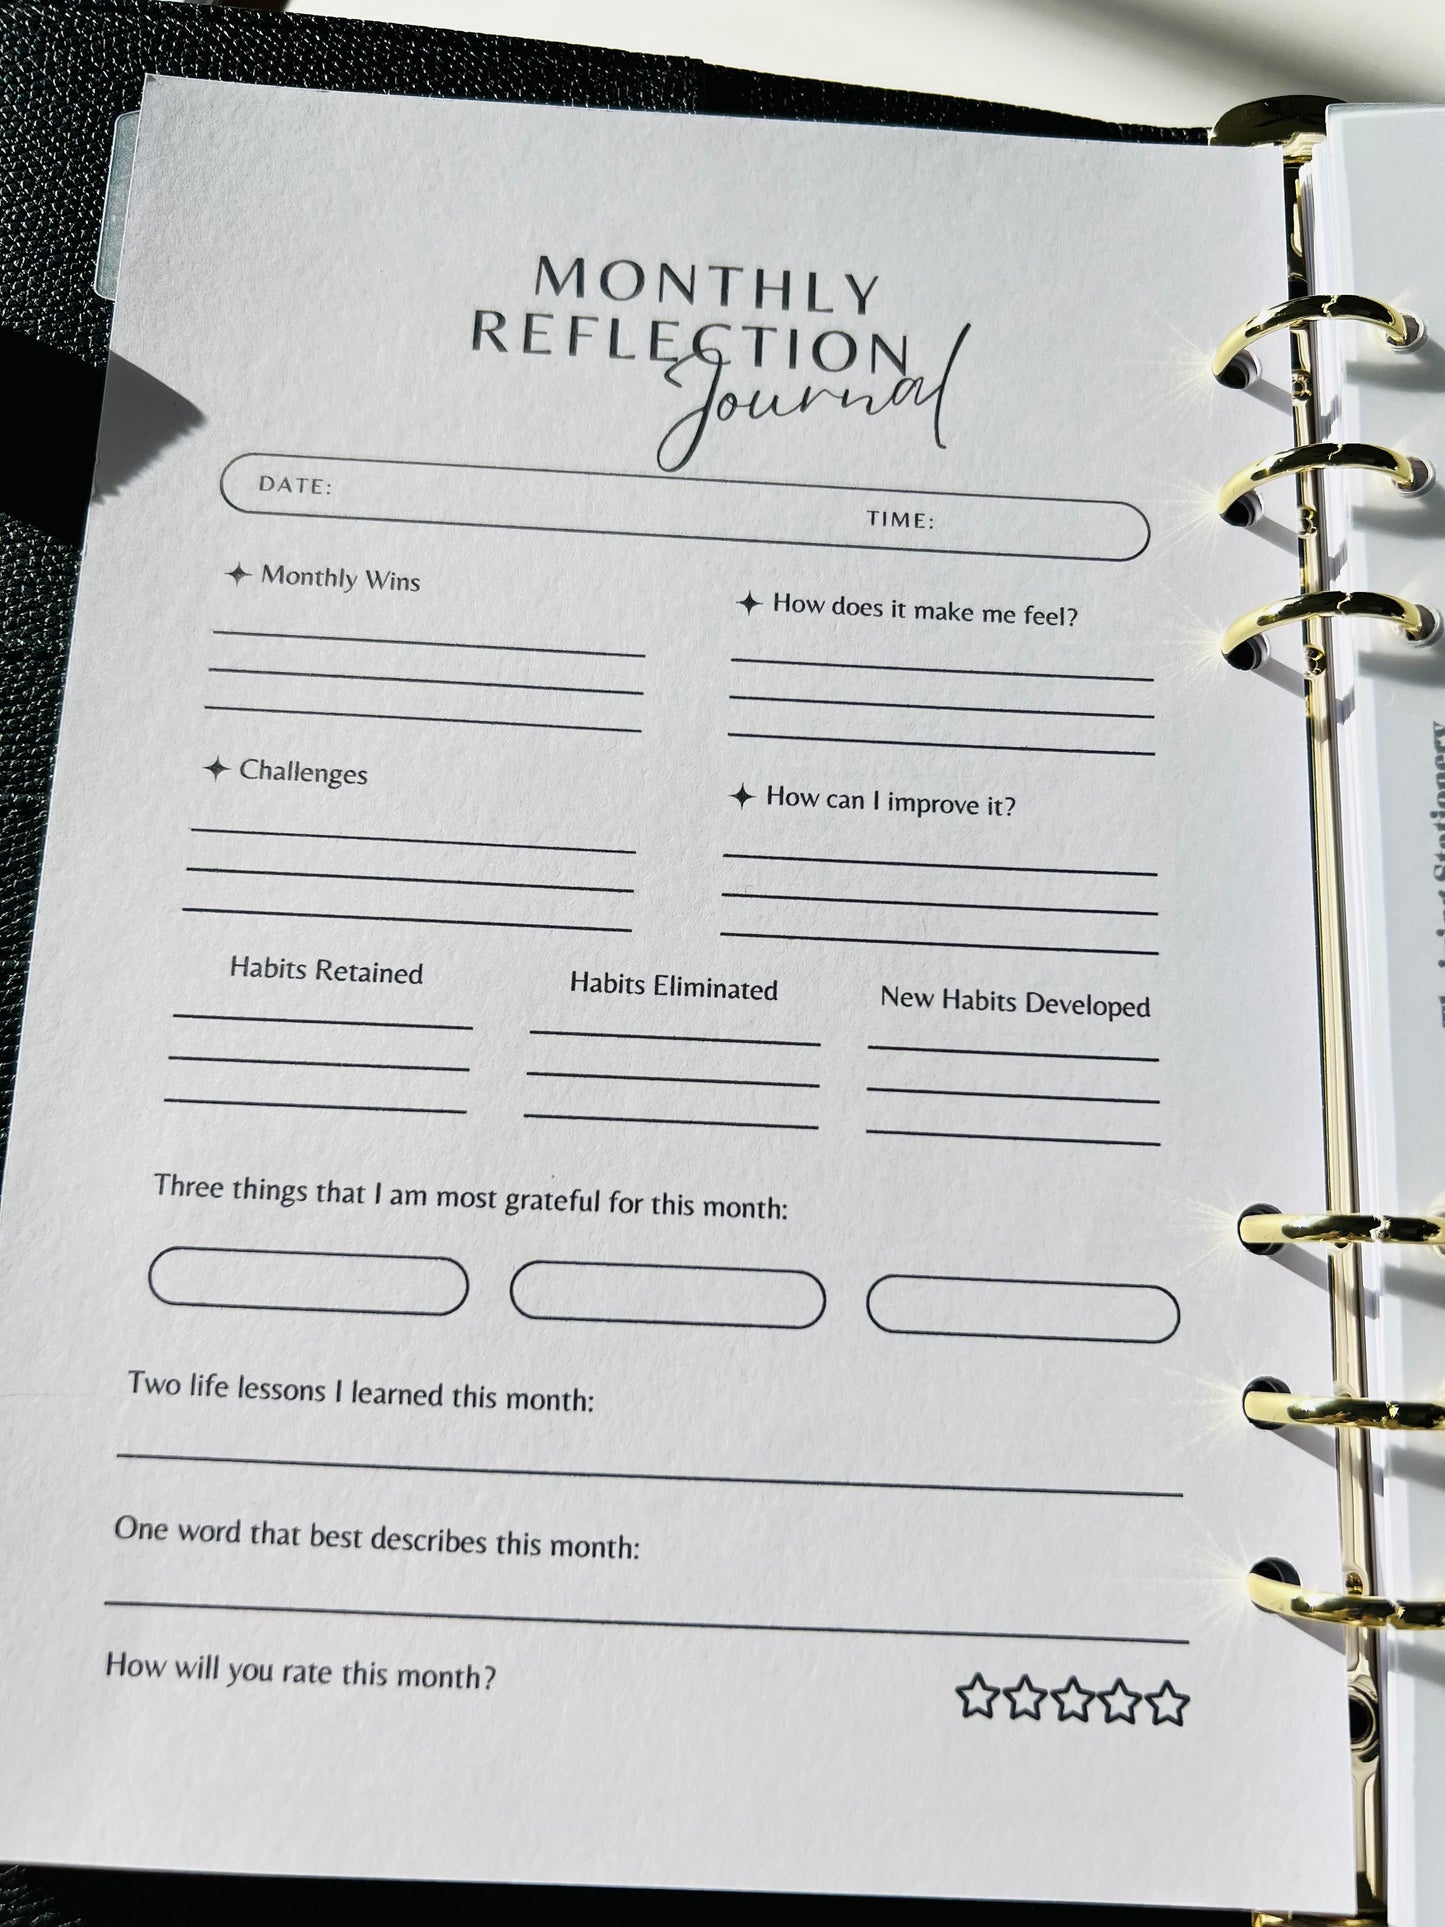 MONTHLY
REFLECTION
Journal
DATE: TIME:
Monthly Wins
How does it make me feel?
Challenges
How can I improve it?
Habits Retained
Habits Eliminated
New Habits Developed
Three things that I am most grateful for this month:
Two life lessons I learned this month:
One word that best describes this month:
How will you rate this month?
Stationery